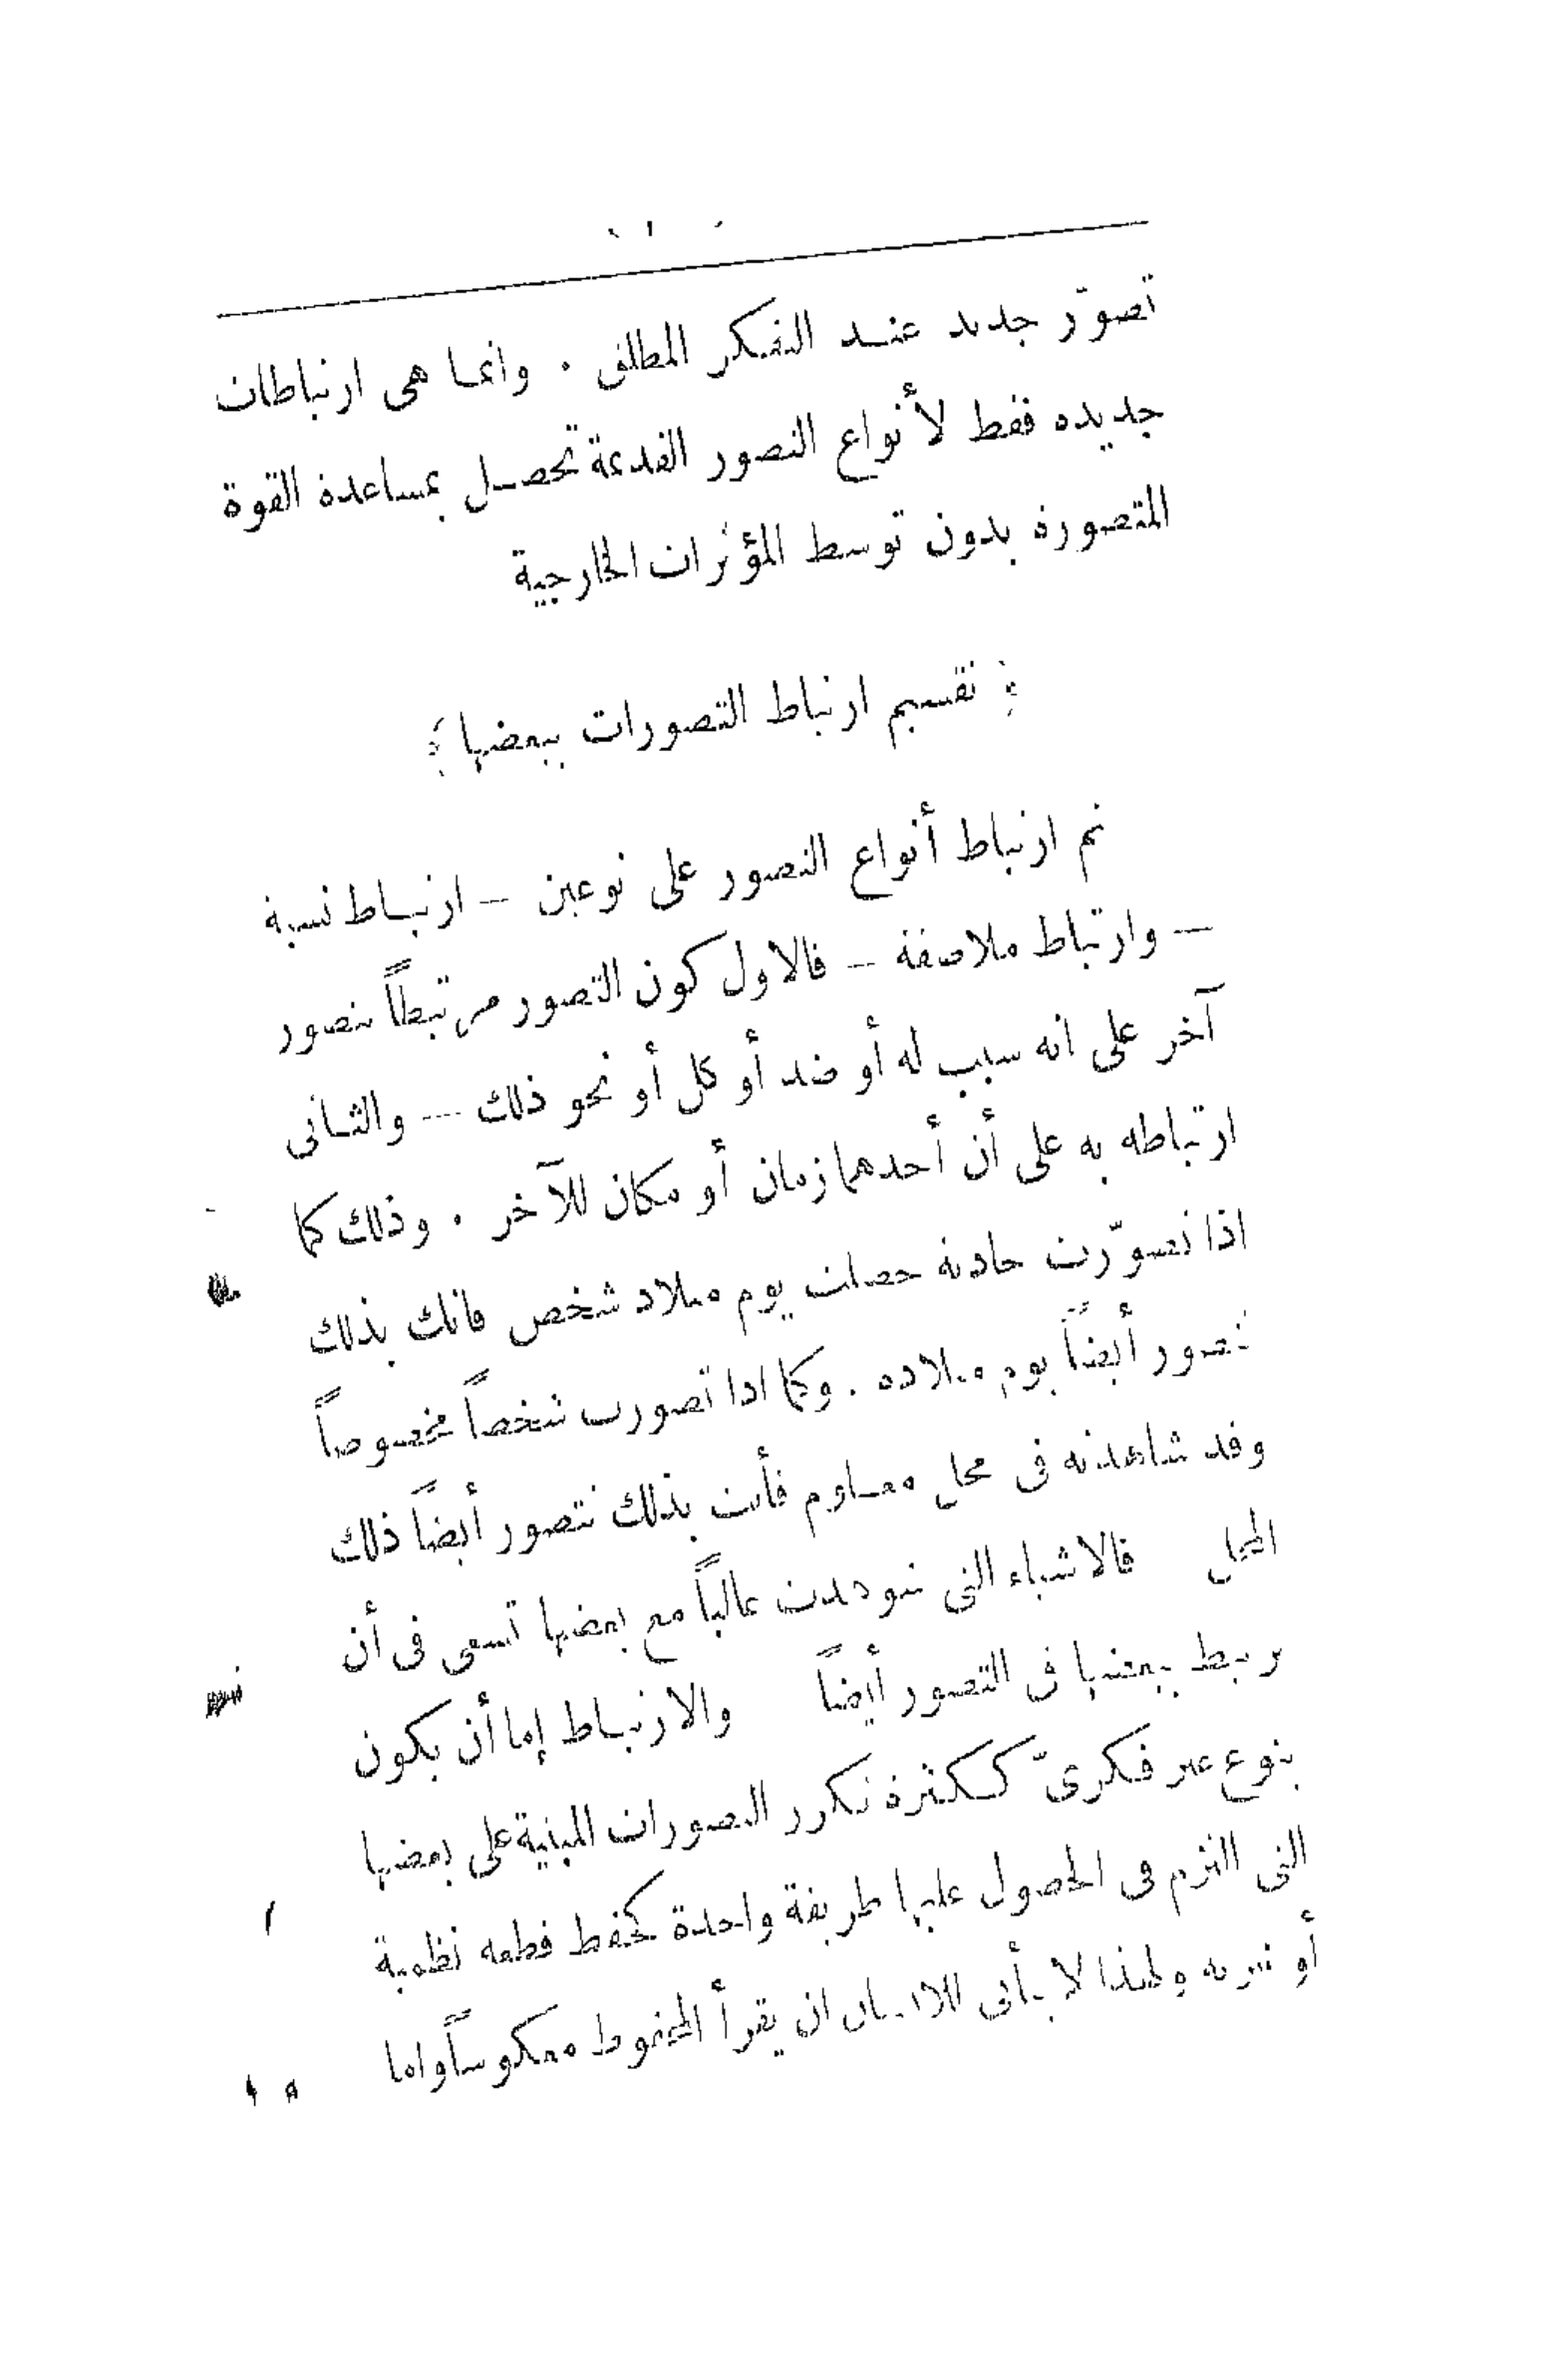 تصوّر جديد عند التفكر المطلق . وانما هى ارتباطات
جديدة فقط لأنواع التصور القديمة تحصل بمساعدة القوة
المتصورة بدون توسط المؤثرات الخارجية
﴿ تقسيم ارتباط التصورات ببعضها ﴾
ثم ارتباط أنواع التصور على نوعين — ارتباط نسبة
— وارتباط ملاصقة — فالاول كون التصور مرتبطاً بتصور
آخر على انه سبب له أو ضد أو كل أو نحو ذلك — والثانى
ارتباطه به على أن أحدهما زمان أو مكان للآخر . وذلك كما
اذا تصوّرت حادثة حصلت يوم ميلاد شخص فانك بذلك
تتصور أيضاً يوم ميلاده . وكما اذا تصورت شخصاً مخصوصاً
وقد شاهدته فى محل معلوم فأنت بذلك تتصور أيضاً ذلك
المحل فالاشياء التى شوهدت غالباً مع بعضها تسعى فى أن
تربط ببعضها فى التصور أيضاً والارتباط إما أن يكون
بنوع غير فكرىّ ككثرة تكرر التصورات المبنية على بعضها
التى التزم فى الحصول عليها طريقة واحدة كحفظ قطعة نظمية
أو نثرية ولهذا لا يأتى للانسان ان يقرأ المحفوظ معكوساً واما